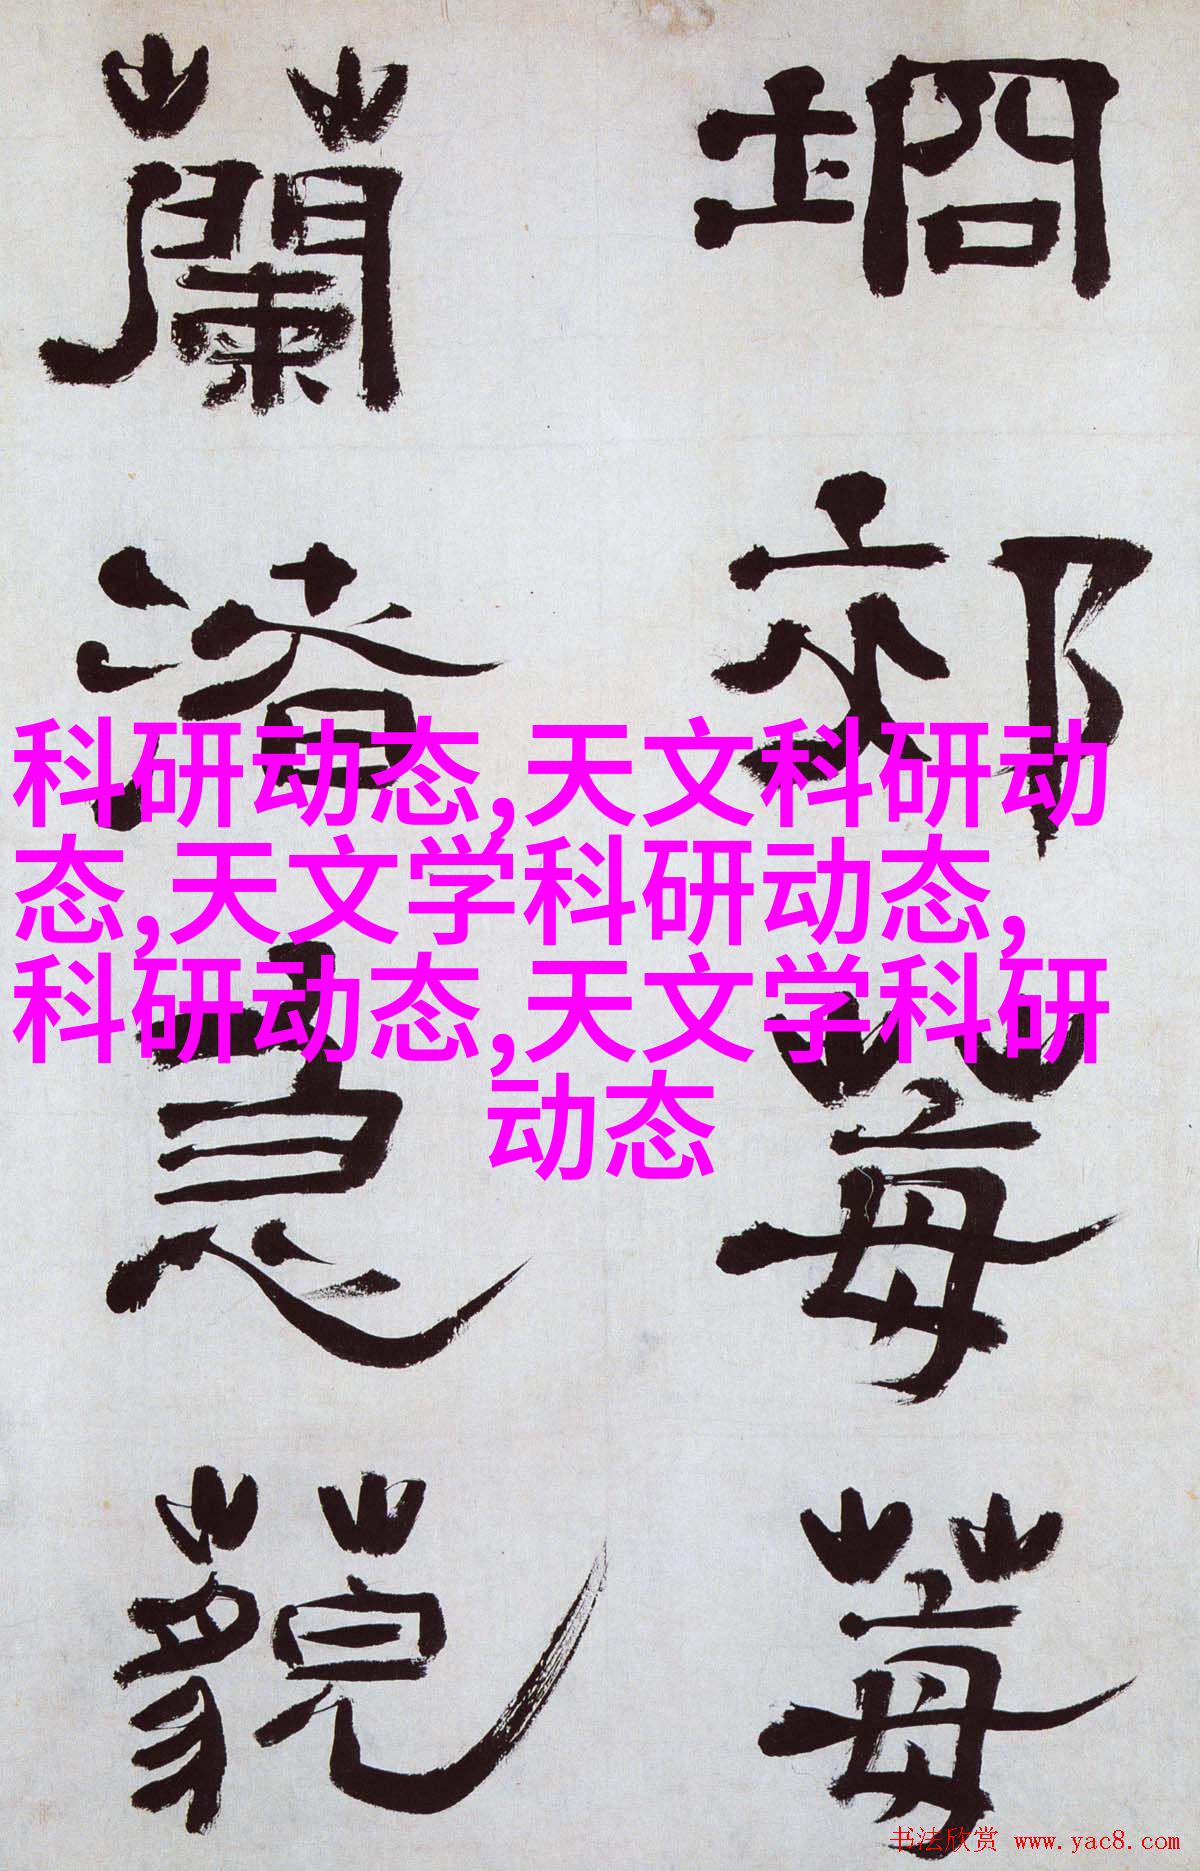 坰郊莓莓
蘭渚急藐
科研动态,天文科研动
态,天文学科研动态,
科研动态,天文学科研
动态
书法欣赏 www.yac8.com